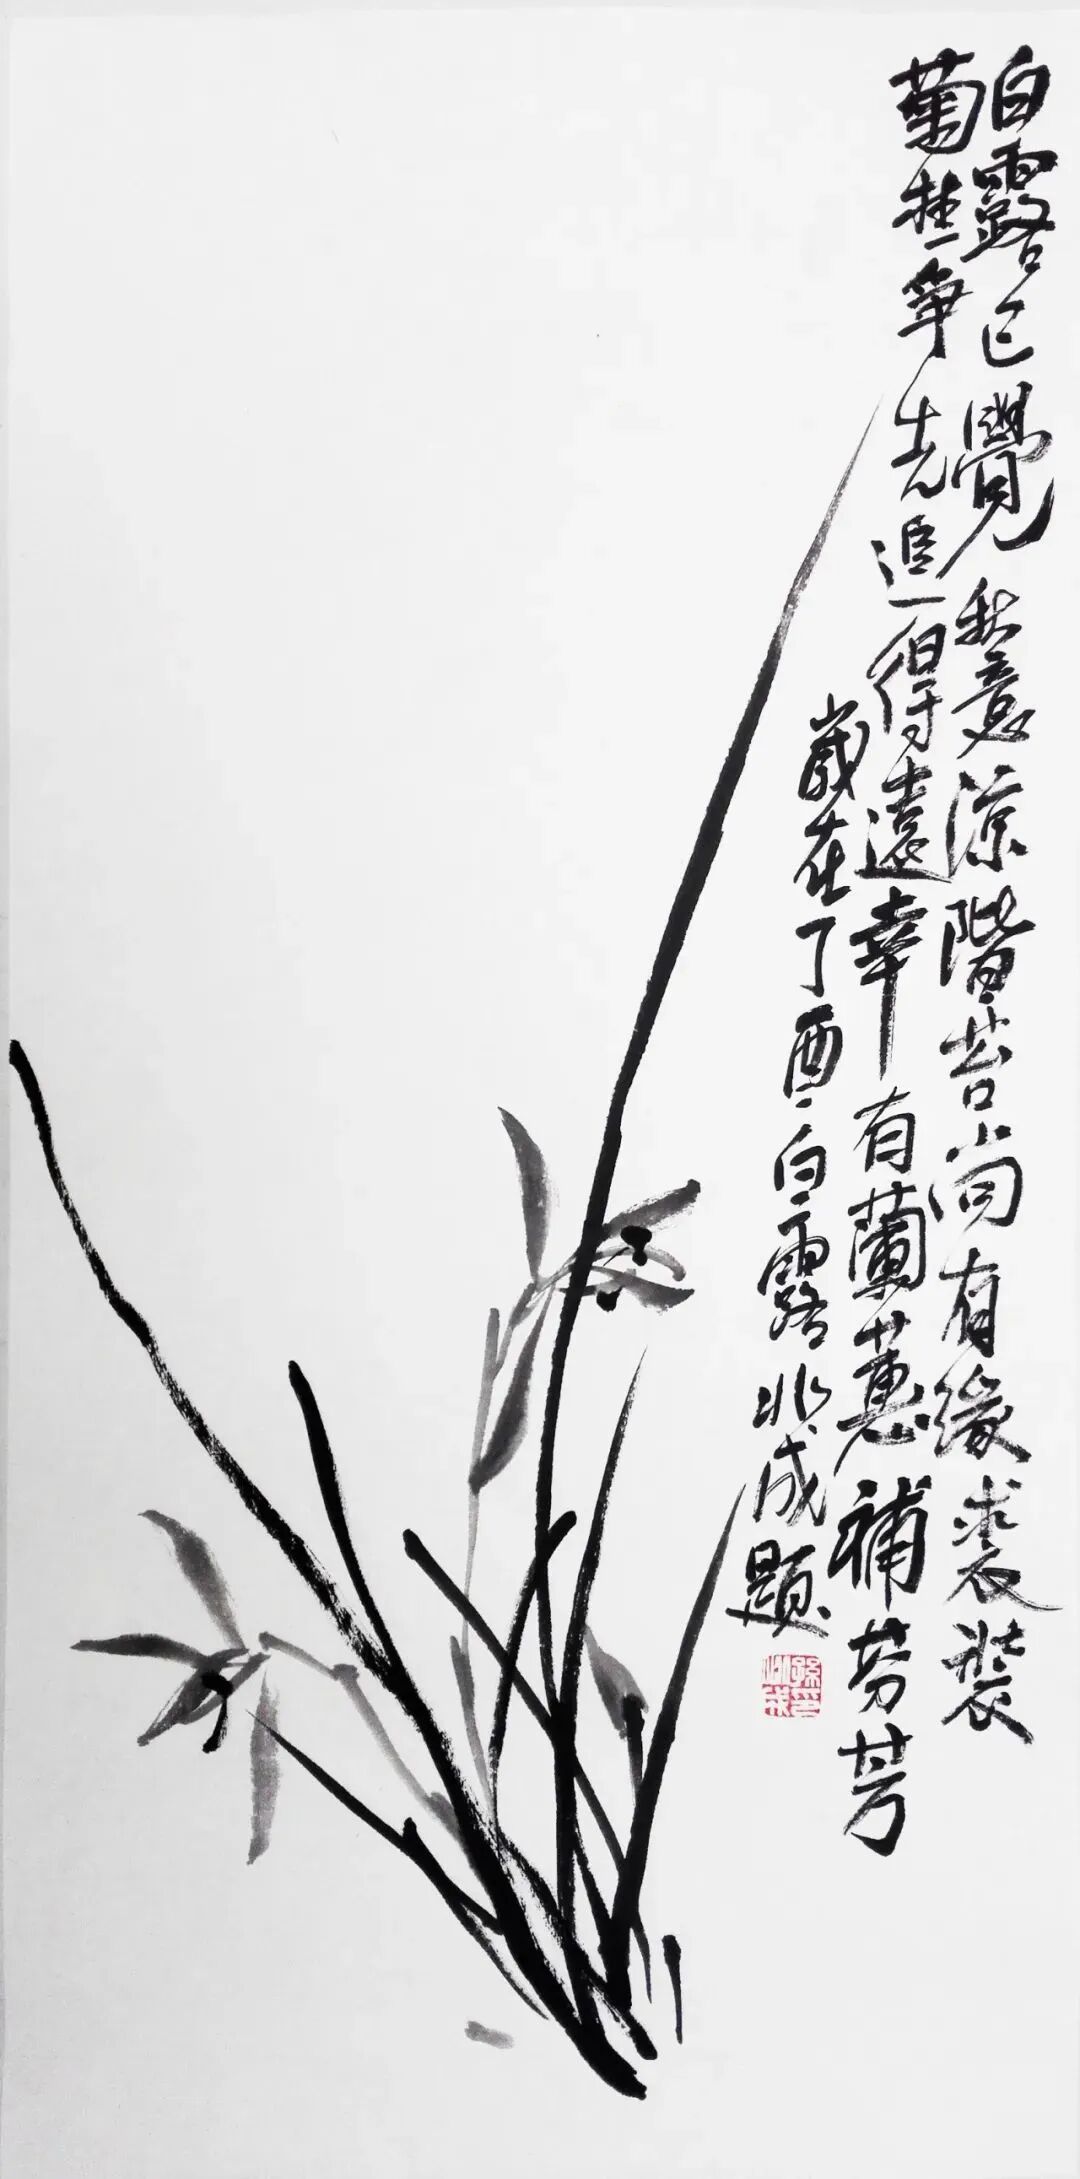 白露已覺秋意涼階苔尚有綠裘裝
菊桂争先追得遠幸有蘭蕙補芬芳
歲在丁酉白露兆成題